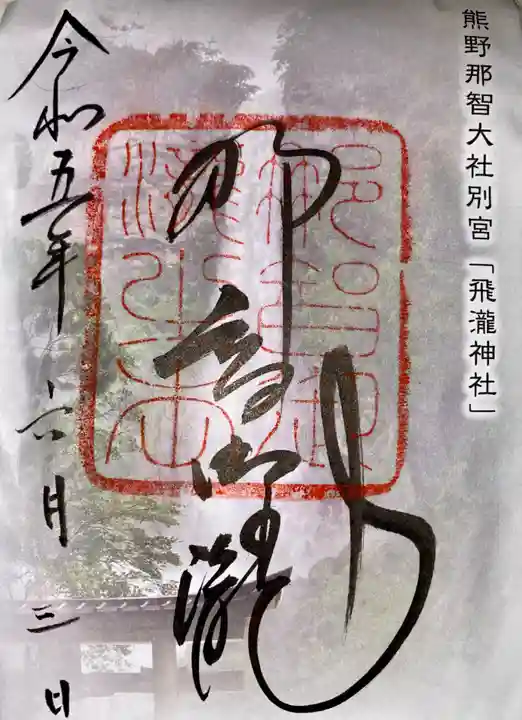 熊野那智大社別宮「飛瀧神社」
那智御瀧
令和五年
六月
三日